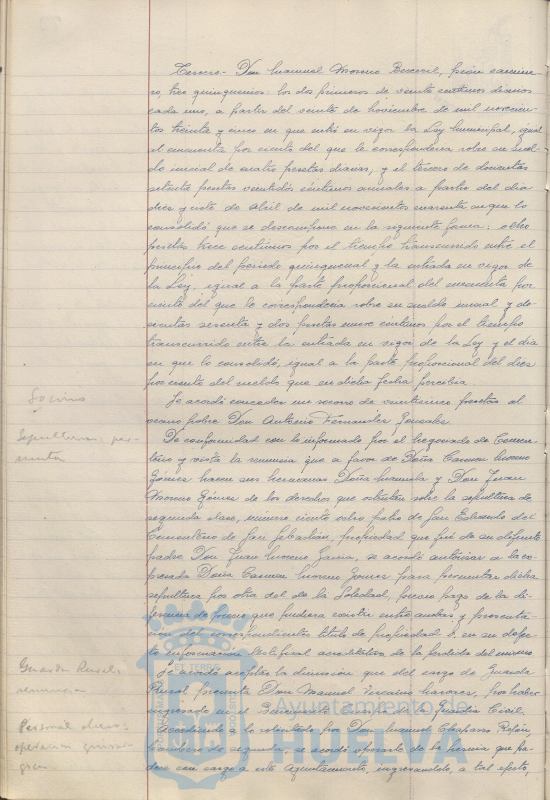 Tercero.- Don Manuel Moreno Becerril, peón camine-
ro, tres quinquenios: los dos primeros de veinte céntimos diarios
cada uno, a partir del veinte de Noviembre de mil novecien-
tos treinta y cinco en que entró en vigor la Ley Municipal, igual
al cincuenta por ciento del que le correspondería sobre su suel-
do inicial de cuatro pesetas diarias, y el tercero de doscientas
setenta pesetas veintidós céntimos anuales a partir del día
diez y siete de Abril de mil novecientos cuarenta en que lo
consolidó que se descompone en la siguiente forma: ocho
pesetas trece céntimos por el tiempo transcurrido entre el
principio del período quinquenal y la entrada en vigor de
la Ley, igual a la parte proporcional del cincuenta por
ciento del que le correspondería sobre su sueldo inicial y dos-
cientas sesenta y dos pesetas nueve céntimos por el tiempo
transcurrido entre la entrada en vigor de la Ley y el día
en que lo consolidó, igual a la parte proporcional del diez
por ciento del sueldo que en dicha fecha percibía.
Socorro
Se acordó conceder un socorro de veinticinco pesetas al
vecino pobre Don Antonio Fernández González.
Sepulturas, per-
mutas
De conformidad con lo informado por el Negociado de Cemen-
terio y vista la renuncia que a favor de Doña Carmen Moreno
Gómez hacen sus hermanos Doña Manuela y Don Juan
Moreno Gómez de los derechos que ostentan sobre la sepultura de
segunda clase, número ciento ocho, patio de San Eduardo del
Cementerio de San Sebastián, propiedad que fué de su difunto
padre Don Juan Moreno García, se acordó autorizar a la ex-
presada Doña Carmen Moreno Gómez para permutar dicha
sepultura por otra del de la Soledad, previo pago de la di-
ferencia de precio que pudiera existir entre ambas y presenta-
ción del correspondiente título de propiedad o en su defec-
to información testifical acreditativa de la pérdida del mismo
Guarda Rural
renuncia
Se acordó aceptar la dimisión que del cargo de Guarda
Rural presenta Don Manuel por haber
ingresado en el Benemérito Cuerpo de la Guardia Civil.
Personal
operación quirúr-
gica
Accediendo a lo solicitado por Don Manuel Chaparro
bombero de segunda, se acordó operarlo de la hernia que pa-
dece con cargo a este Ayuntamiento, ingresándolo, a tal efecto,
Ayuntamiento de
HUELVA